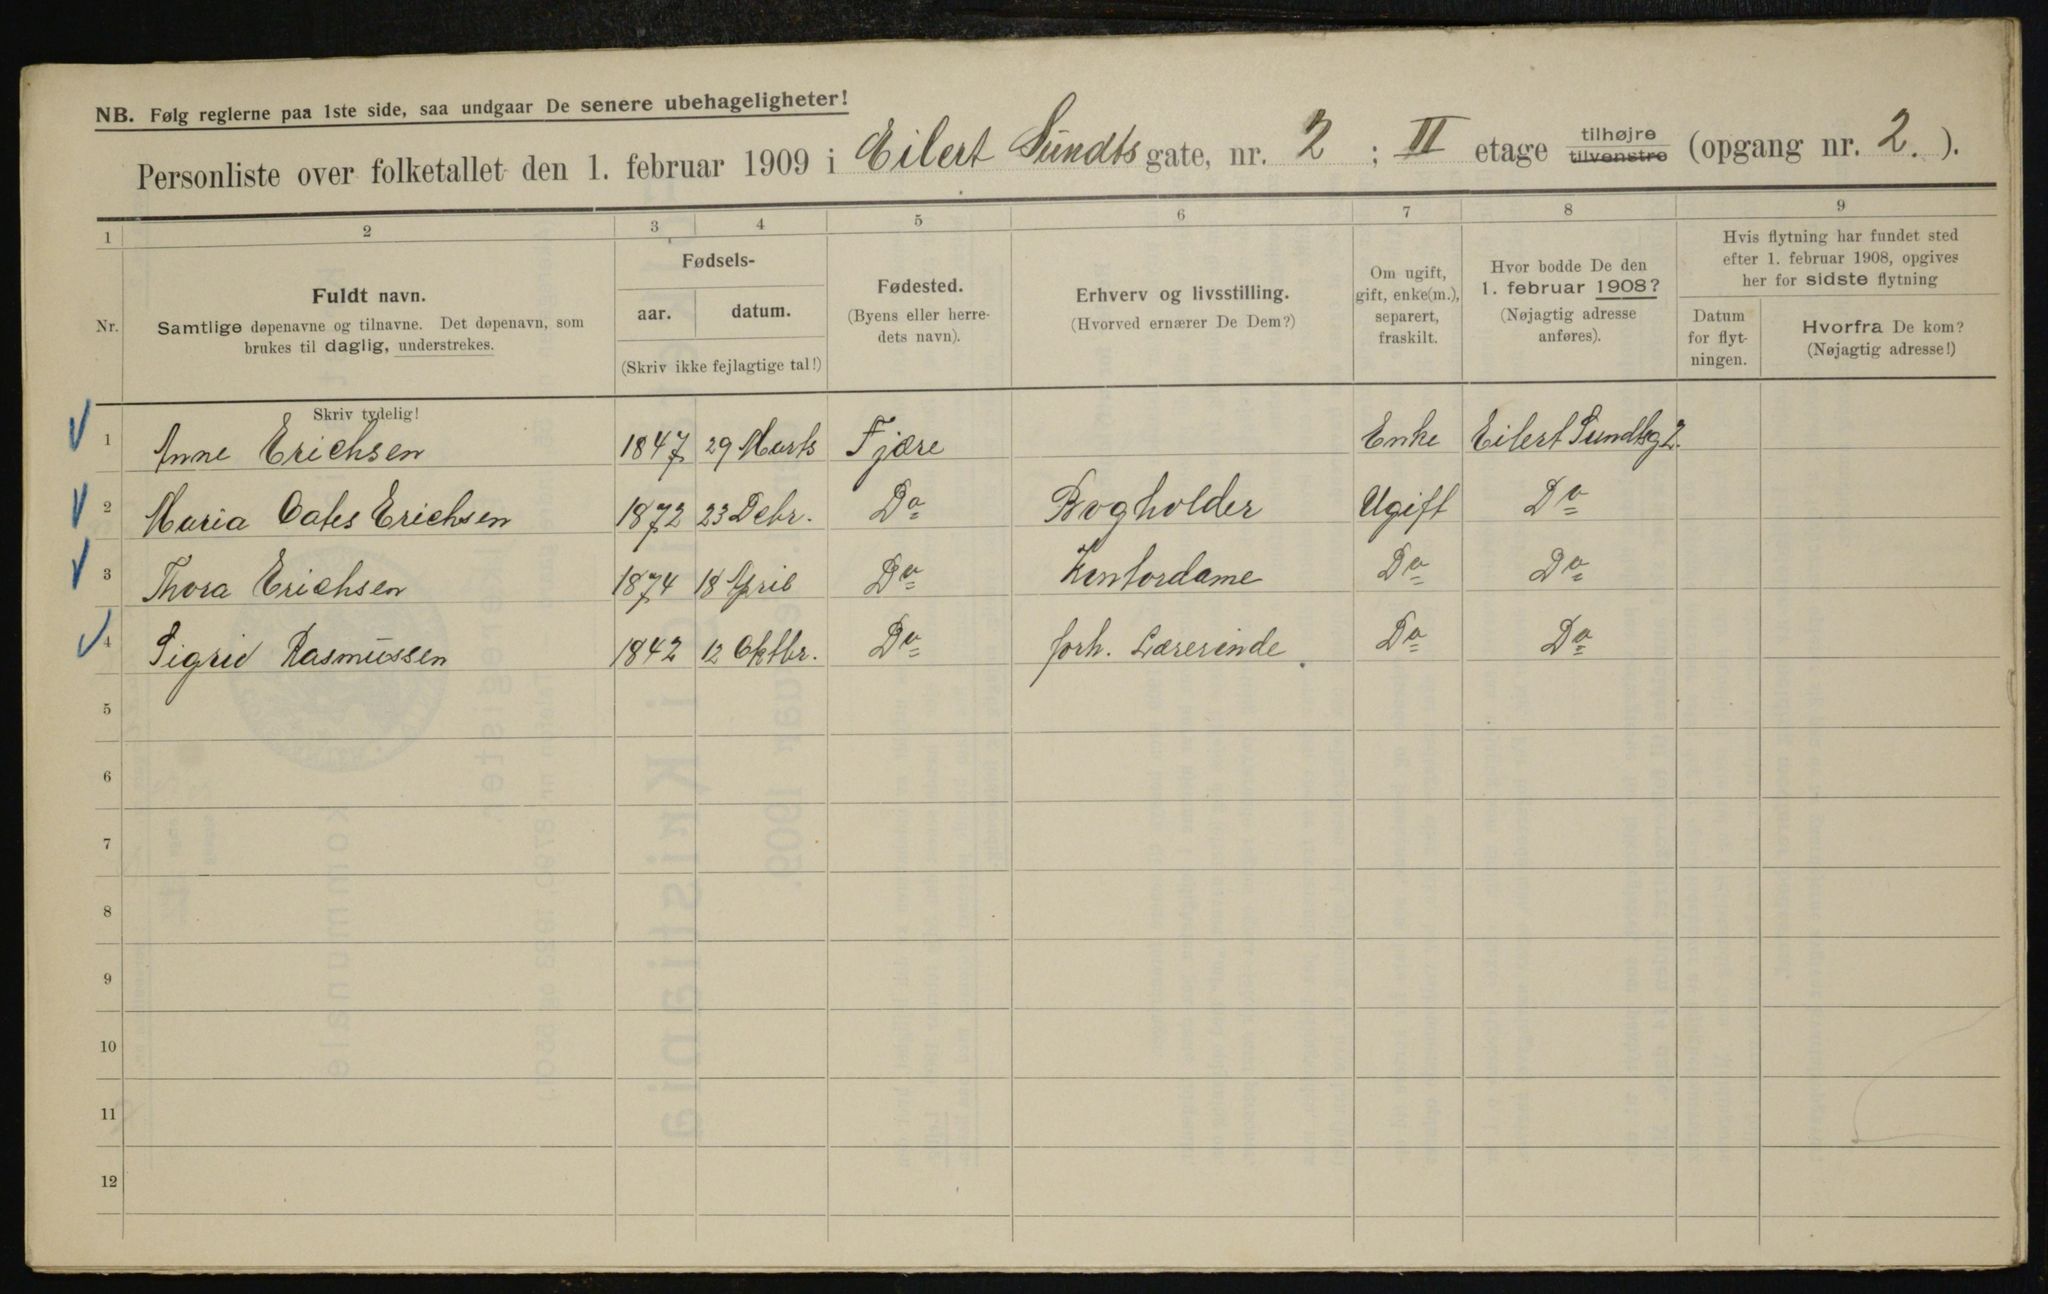 NB. Følg reglerne paa 1ste side, saa undgaar De senere ubehageligheter!
Personliste over folketallet den 1. februar 1909 i Eilert Sundts gate, nr. 2 ; II etage tilhøjre tilvenstre (opgang nr. 2. ).
1 2 3 4 5 6 7 8 9
Nr.
Fuldt navn.
Samtlige døpenavne og tilnavne. Det døpenavn, som
brukes til daglig, understrekes.
Fødsels-
aar. datum.
(Skriv ikke fejlagtige tal!)
Fødested.
(Byens eller herre-
dets navn).
Erhverv og livsstilling.
(Hvorved ernærer De Dem?)
Om ugift,
gift, enke(m.),
separert,
fraskilt.
Hvor bodde De den
1. februar 1908?
(Nøjagtig adresse
anføres).
Hvis flytning har fundet sted
efter 1. februar 1908, opgives
her for sidste flytning
Datum
for flyt-
ningen.
Hvorfra De kom?
(Nøjagtig adresse!)
Skriv tydelig!
1 Anne Erichsen 1847 29 Marts Fjære Enke Eilert Sundtsg 2.
2 Maria Oates Erichsen 1872 23 Debr. Do Bogholder Ugift Do
3 Thora Erichsen 1874 18 April Do Kontordame Do Do
4 Sigrid Rasmussen 1842 12 Oktbr. Do forh. Lærerinde Do Do
5
6
7
8
9
10
11
12